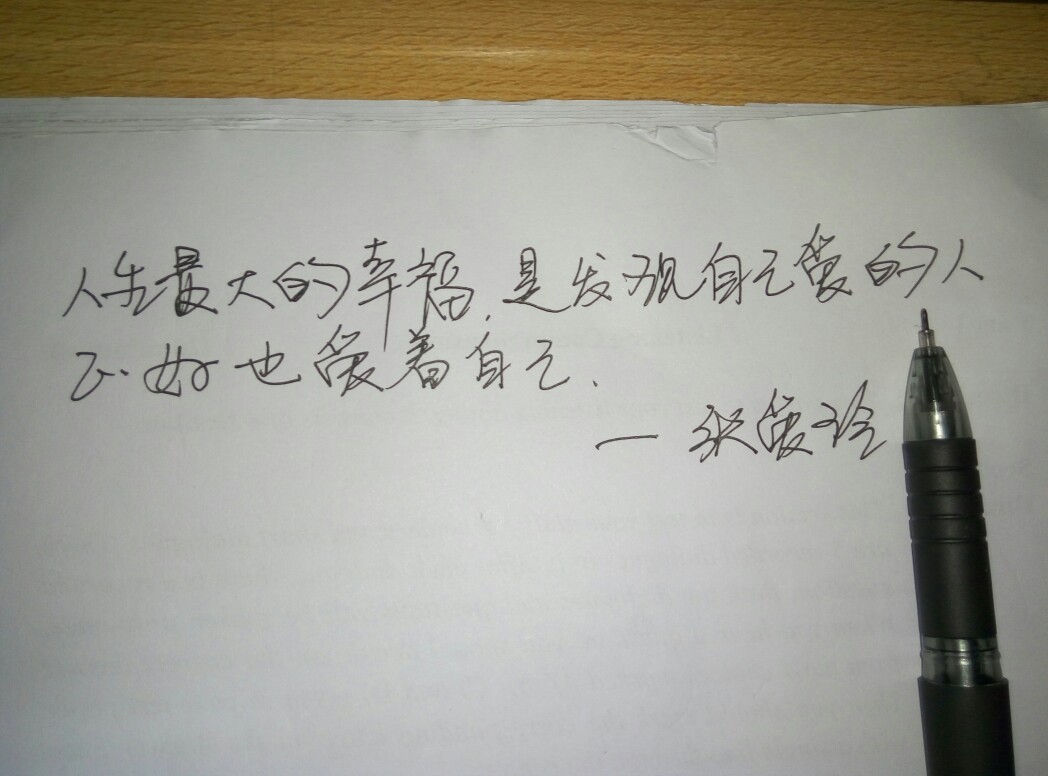 人生最大的幸福,是发现自己爱的人
正好也爱着自己.
一 张爱玲